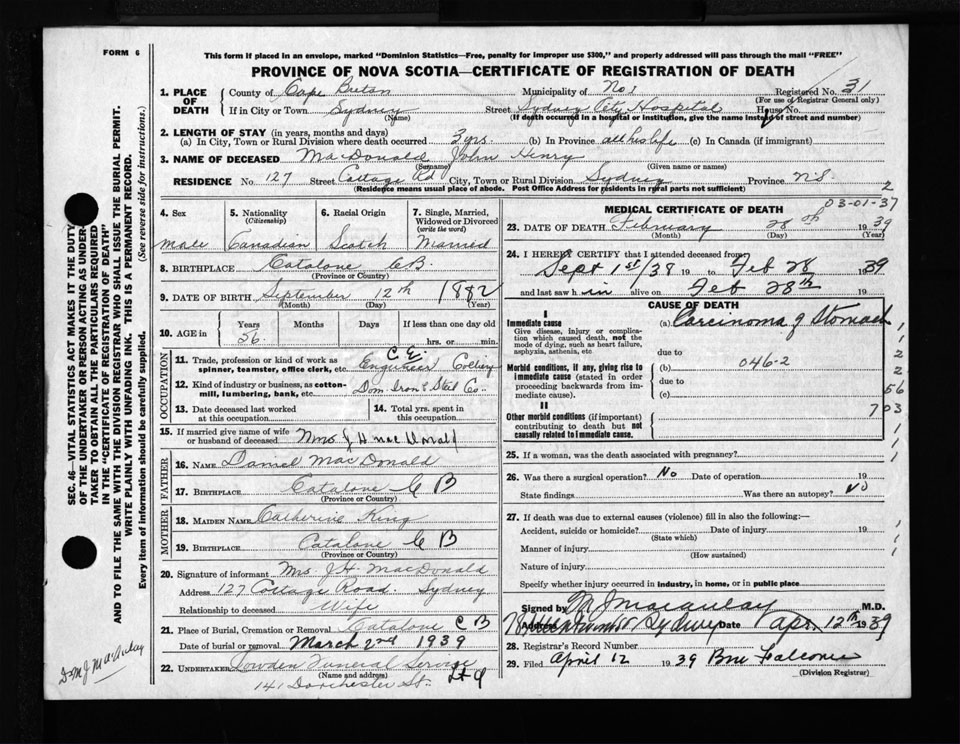 FORM 6
This form if placed in an envelope, marked "Dominion Statistics—Free, penalty for improper use $300," and properly addressed will pass through the mail "FREE"
PROVINCE OF NOVA SCOTIA—CERTIFICATE OF REGISTRATION OF DEATH
1. PLACE OF DEATH County of Cape Breton Municipality of No 1 Registered No. 31
(For use of Registrar General only)
If in City or Town Sydney Street Sydney City Hospital House No.
(Name) (If death occurred in a hospital or institution, give the name instead of street and number)
2. LENGTH OF STAY (in years, months and days)
(a) In City, Town or Rural Division where death occurred 3 yrs. (b) In Province all his life (c) In Canada (if immigrant)
3. NAME OF DECEASED MacDonald John Henry
(Surname) (Given name or names)
RESIDENCE No. 127 Street Cottage Rd City, Town or Rural Division Sydney Province N.S.
(Residence means usual place of abode. Post Office Address for residents in rural parts not sufficient)
2
4. Sex 5. Nationality (Citizenship) 6. Racial Origin 7. Single, Married, Widowed or Divorced (write the word)
male Canadian Scotch Married
8. BIRTHPLACE Catalone C.B.
(Province or Country)
9. DATE OF BIRTH September 12th 1882
(Month) (Day) (Year)
10. AGE in Years Months Days If less than one day
56. hrs. or min.
OCCUPATION
11. Trade, profession or kind of work as spinner, teamster, office clerk, etc. C.E. Engineer Colliery
12. Kind of industry or business, as cotton-mill, lumbering, bank, etc. Dom Iron & Steel Co.
13. Date deceased last worked at this occupation 14. Total yrs. spent in this occupation
15. If married give name of wife or husband of deceased Mrs J H MacDonald
FATHER
16. NAME Daniel MacDonald
17. BIRTHPLACE Catalone C B
(Province or Country)
MOTHER
18. MAIDEN NAME Catherine King
19. BIRTHPLACE Catalone C B
(Province or Country)
20. Signature of informant Mrs. J.H. MacDonald
Address 127 Cottage Road. Sydney
Relationship to deceased Wife
21. Place of Burial, Cremation or Removal Catalone C B
Date of burial or removal March 2nd 1939
22. UNDERTAKER Lowden Funeral Service Ltd
(Name and address)
141 Dorchester St.
MEDICAL CERTIFICATE OF DEATH 03-01-37
23. DATE OF DEATH February 28th 1939
(Month) (Day) (Year)
24. I HEREBY CERTIFY that I attended deceased from
Sept 1st/38 19 to Feb 28 1939
and last saw him alive on Feb 28th 19
CAUSE OF DEATH
I
Immediate cause (a) Carcinoma of Stomach
Give disease, injury or complication which caused death, not the mode of dying, such as heart failure, asphyxia, asthenia, etc due to
Morbid conditions, if any, giving rise to immediate cause (stated in order proceeding backwards from immediate cause). (b) 046-2
due to
(c)
II
Other morbid conditions (if important) contributing to death but not causally related to immediate cause.
1
1
2
2
56
703
1
1
1
25. If a woman, was the death associated with pregnancy?
26. Was there a surgical operation? No Date of operation 19
State findings Was there an autopsy? No
27. If death was due to external causes (violence) fill in also the following:—
Accident, suicide or homicide? Date of injury 19
(State which)
Manner of injury
(How sustained)
Nature of injury
Specify whether injury occurred in industry, in home, or in public place
1
1
1
Signed by M J Macaulay M.D.
Address Sydney Date Apr. 12th 1939
28. Registrar's Record Number
29. Filed April 12 1939 Falconer
(Division Registrar)
SEC. 46—VITAL STATISTICS ACT MAKES IT THE DUTY OF THE UNDERTAKER OR PERSON ACTING AS UNDERTAKER TO OBTAIN ALL THE PARTICULARS REQUIRED IN THE "CERTIFICATE OF REGISTRATION OF DEATH"
AND TO FILE THE SAME WITH THE DIVISION REGISTRAR WHO SHALL ISSUE THE BURIAL PERMIT.
WRITE PLAINLY WITH UNFADING INK. THIS IS A PERMANENT RECORD.
Every item of information should be carefully supplied. (See reverse side for instructions.)
Dr M J MacAulay